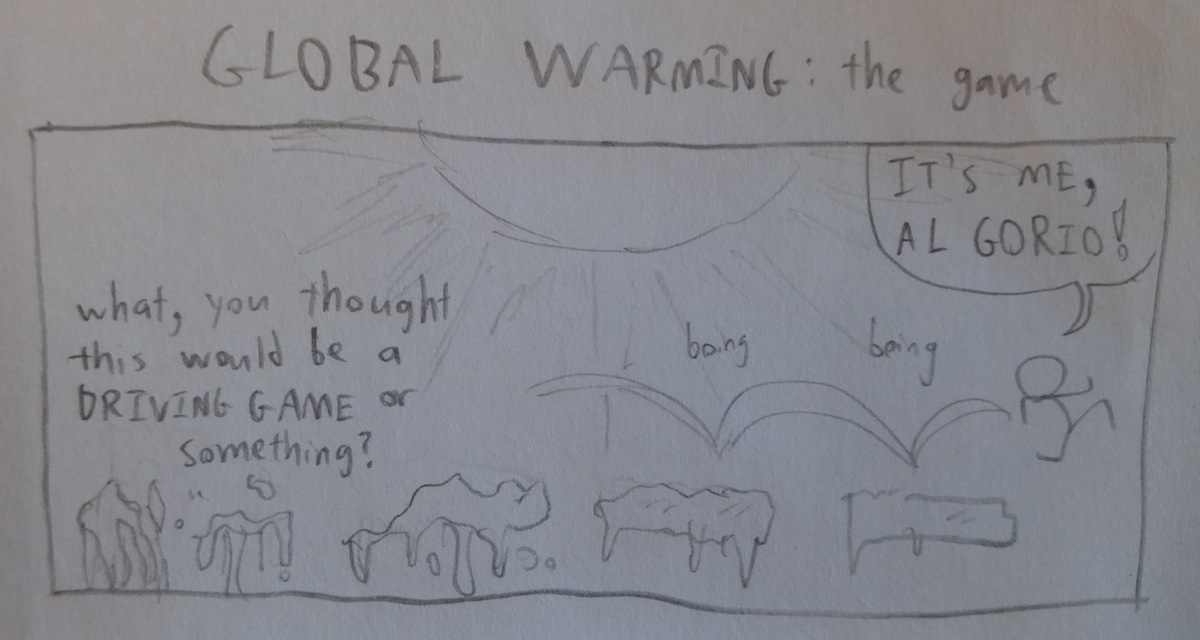 GLOBAL WARMING: the game
IT'S ME,
AL GORIO!
what, you thought
this would be a
DRIVING GAME or
something?
boing
boing